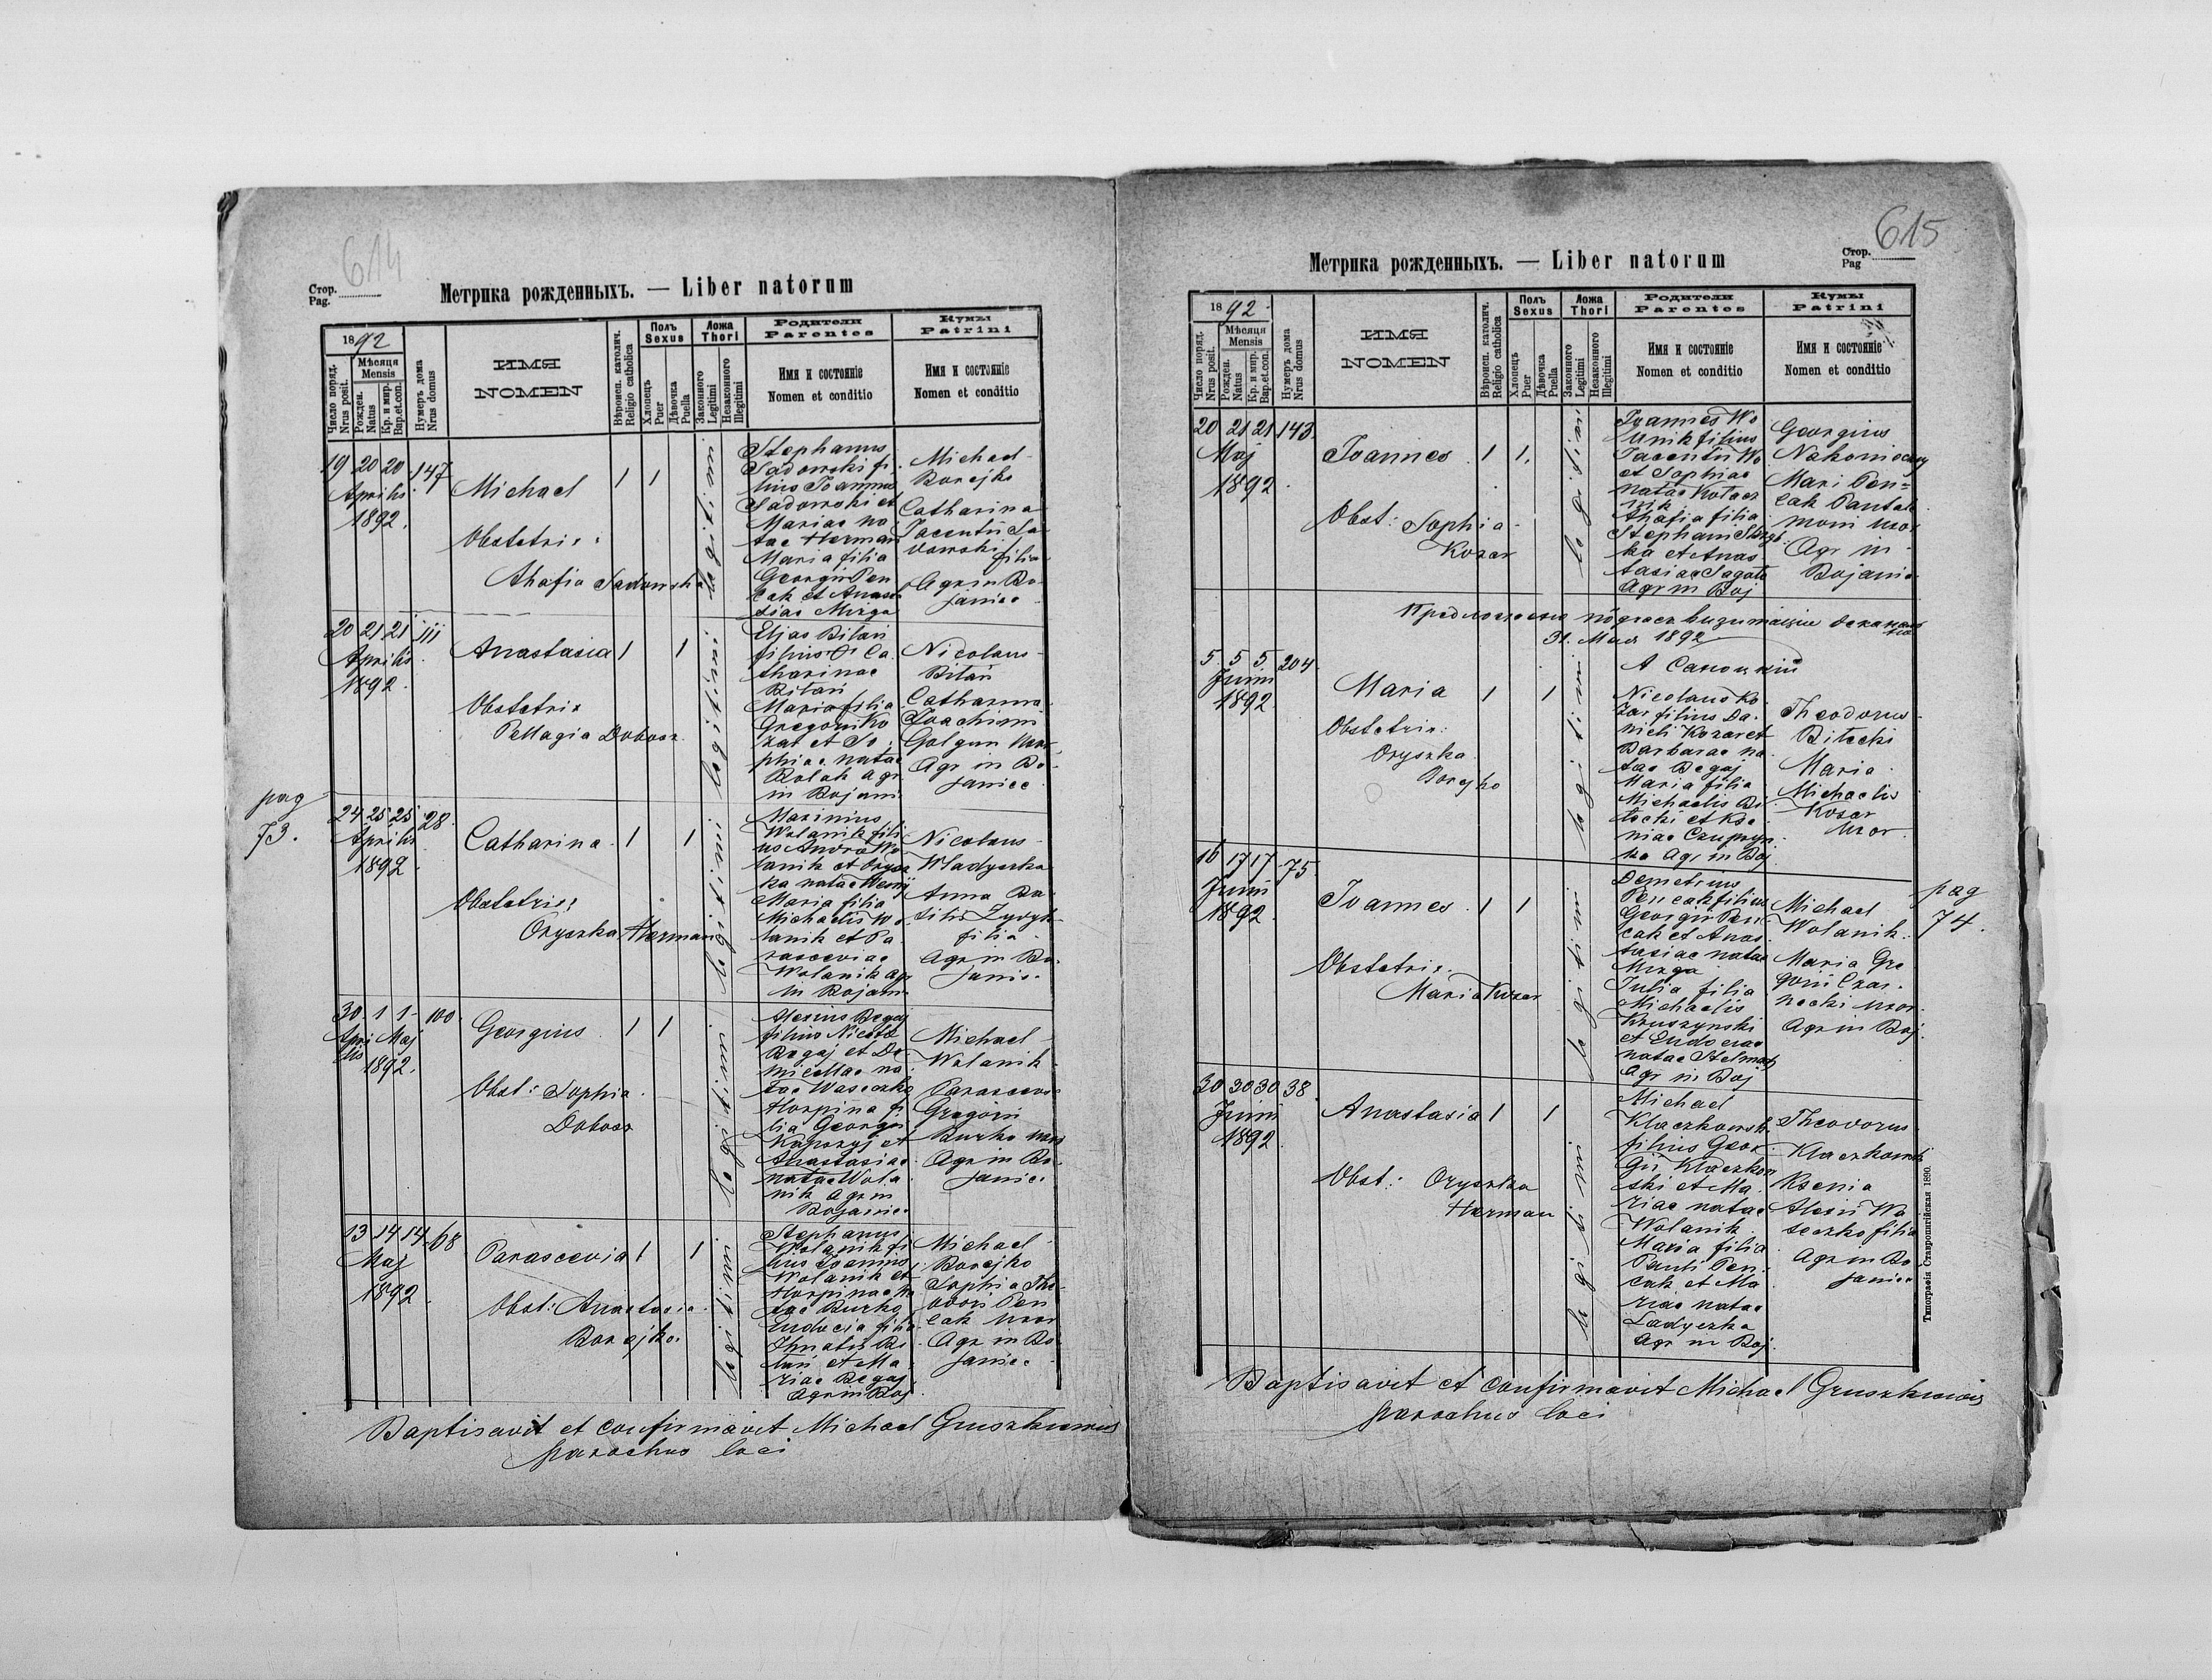 614
Стор.
Pag.
Метрика рожденныхъ. — Liber natorum
1892
Число поряд.
Nrus posit.
Мѣсяця
Mensis
Рожден.
Natus
Кр. и мир.
Bap.et.con.
Нумеръ дома
Nrus domus
ИМЯ
NOMEN
Вѣроисп. католич.
Religio catholica
Полъ
Sexus
Хлопецъ
Puer
Дѣвочка
Puella
Ложа
Thori
Законного
Legitimi
Незаконного
Illegitimi
Родители
Parentes
Имя и состояніе
Nomen et conditio
Кумы
Patrini
Имя и состояніе
Nomen et conditio
19 20 20 147
Aprilis
1892.
Michael 1 1
Obstetrix:
Ahafia Sadowska
legitimi
Stephanus
Sadowski fi
lius Joannis
Sadowski et
Mariae na
tae Herman
Maria filia
Georgii Pen
cak et Anasta
siae Mizga
Michael
Borejko
Catharina
Jacentii Sa
dowski filia
Agr in Bo
janice
20 21 21 111
Aprilis
1892.
Anastasia 1 1
Obstetrix
Pellagia Dobosz
legitimi
Elias Bitan
filius et Ca
tharinae
Bitan
Maria filia
Gregorii Ko
zar et So
phiae natae
Rolak agr
in Bojani
Nicolaus
Bitan
Catharina
Joachimi
Golgun uxor
Agr in Bo
janice
pag
73.
24 25 25 28
Aprilis
1892.
Catharina 1 1
Obstetrix
Oryszka Herman
legitimi
Maximus
Wolanik fili
us Andreae Wo
lanik et Orysz
ka natae
Maria filia
Michaelis Wo
lanik et Pa
rasceviae
Wolanik agr
in Bojani
Nicolaus
Wladyczka
Anna Ba
silii
filia
Agr in Bo
janice
30 1 1 100
Apri Maj
lis
1892.
Georgius 1 1
Obst: Sophia
Dobosz
legitimi
Alexius Begaj
filius Nicolai
Begaj et Do
micellae na
tae Waseczko
Horpina fi
lia Georgii
et
Anastasiae
natae Wola
nik Agr in
Bojanice
Michael
Wolanik
Parascevia
Gregorii
Burko uxor
Agr in Bo
janice
13 14 14 68
Maj
1892.
Parascevia 1 1
Obst: Anastasia
Borejko.
legitimi
Stephanus
Wolanik fi
lius Joannis
Wolanik et
Horpinae na
tae Burko
Eudocia filia
Ihnatii Bi
tan et Ma
riae Begaj
Agr in Boj
Michael
Borejko
Sophia The
odori Pen
cak uxor
Agr in Bo
janice
Baptisavit et confirmavit Michael Gruszkiewicz
parochus loci
615
Стор.
Pag
Метрика рожденныхъ. — Liber natorum
1892
Число поряд.
Nrus posit.
Мѣсяця
Mensis
Рожден.
Natus
Кр. и мир.
Bap.et.con.
Нумеръ дома
Nrus domus
ИМЯ
NOMEN
Вѣроисп. католич.
Religio catholica
Полъ
Sexus
Хлопецъ
Puer
Дѣвочка
Puella
Ложа
Thori
Законного
Legitimi
Незаконного
Illegitimi
Родители
Parentes
Имя и состояніе
Nomen et conditio
Кумы
Patrini
Имя и состояніе
Nomen et conditio
20 21 21 143
Maj
1892.
Joannes 1 1.
Obst: Sophia
Kozar
legitimi
Joannes Wo
filius
Jacentii Wo
et Sophiae
natae Kolacz
nik
Ahafia filia
Stephani
ka et Anas
tasiae Sagata
Agr in Boj
Georgius
Nakonieczny
Mari Pen=
cak Pantale
moni uxor
Agr in
Bojanice
Предложено подчас визитаціи деканал
31. Мая 1892
5 5 5 204
Junii
1892
Maria 1 1
Obstetrix:
Oryszka
Borejko
legitimi
Nicolaus Ko
zar filius Da
nieli Kozar et
Barbarae na
tae Begaj
Maria filia
Michaelis Bi
lecki et Kse
niae Czupryn
ka Agr in Boj
Theodorus
Bilecki
Maria
Michaelis
Kozar
uxor
16 17 17 75
Junii
1892
Joannes 1 1
Obstetrix.
Maria Kozar
legitimi
Demetrius
Pencak filius
Georgii Pen
cak et Anas
tasiae natae
Mizga
Julia filia
Michaelis
Kruszynski
et Eudociae
natae Stelmach
Agr in Boj
Michael
Wolanik
Maria Gre
gorii Czar
necki uxor
Agr in Boj
pag
74.
30 30 30 38
Junii
1892
Anastasia 1 1
Obst: Oryszka
Herman
legitimi
Michael
Klaczkowski
filius Geor
gii Klaczkow
ski et Ma
riae natae
Wolanik
Maria filia
Pauli Pen
cak et Ma
riae natae
Ladyczka
Agr in Boj
Theodorus
Klaczkowski
Ksenia
Alexii Wa
seczko filia
Agr in Bo
janice
Baptisavit et confirmavit Michael Gruszkiewicz
parochus loci
Типографія Ставропигійская 1890.